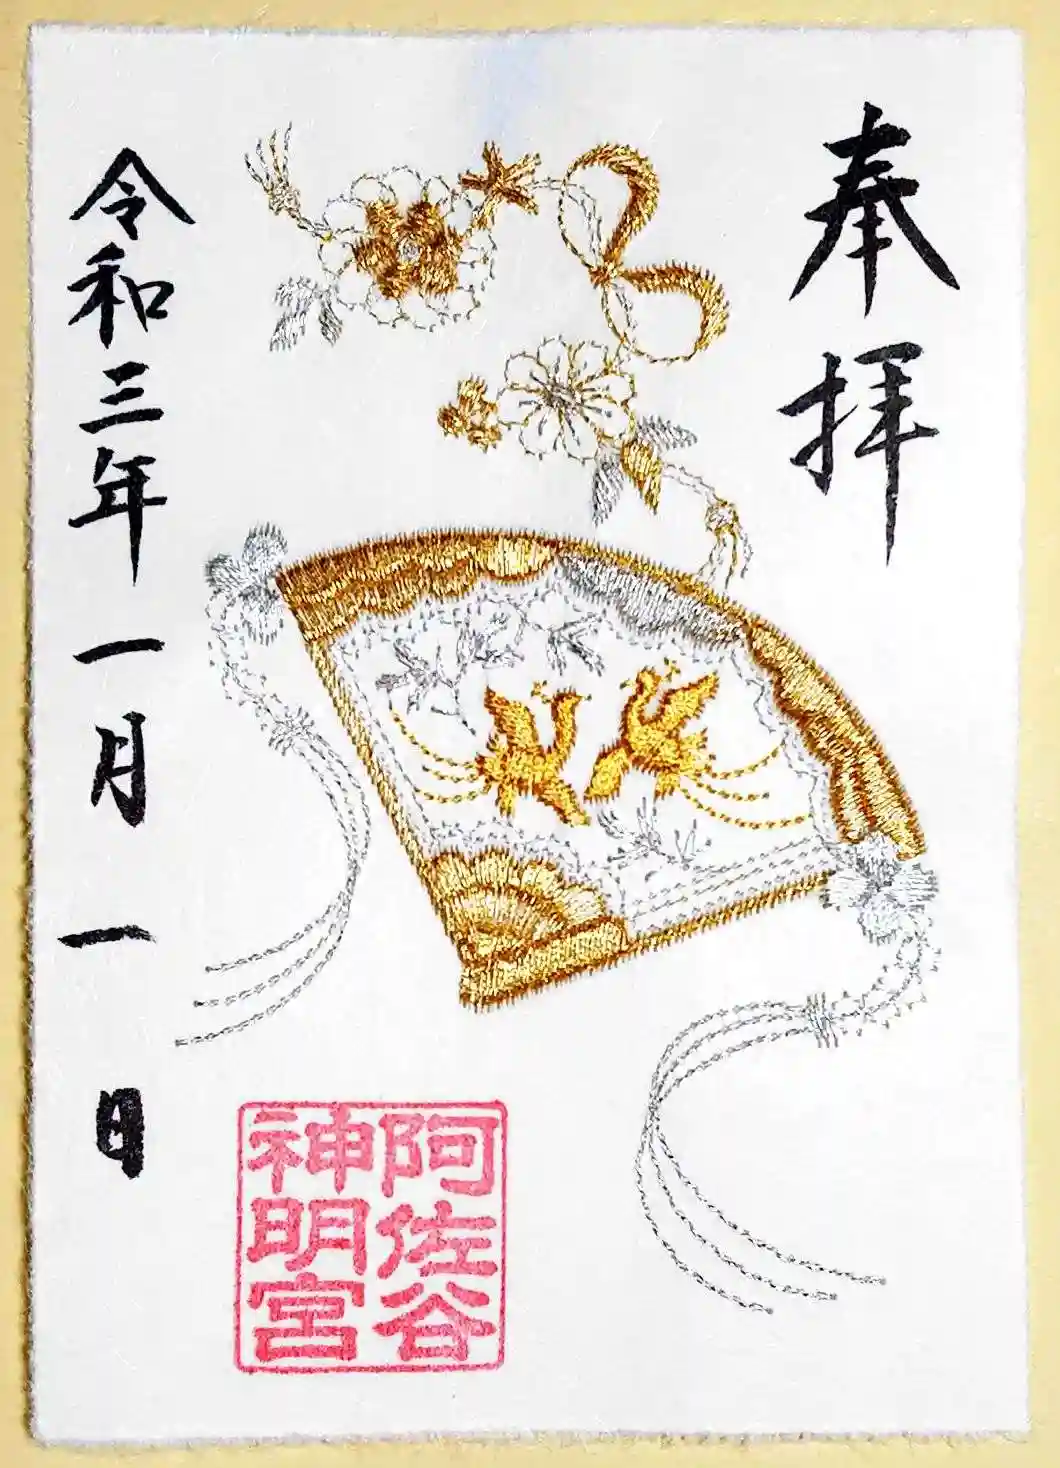 奉拝
令和三年一月一日
阿佐谷
神明宮